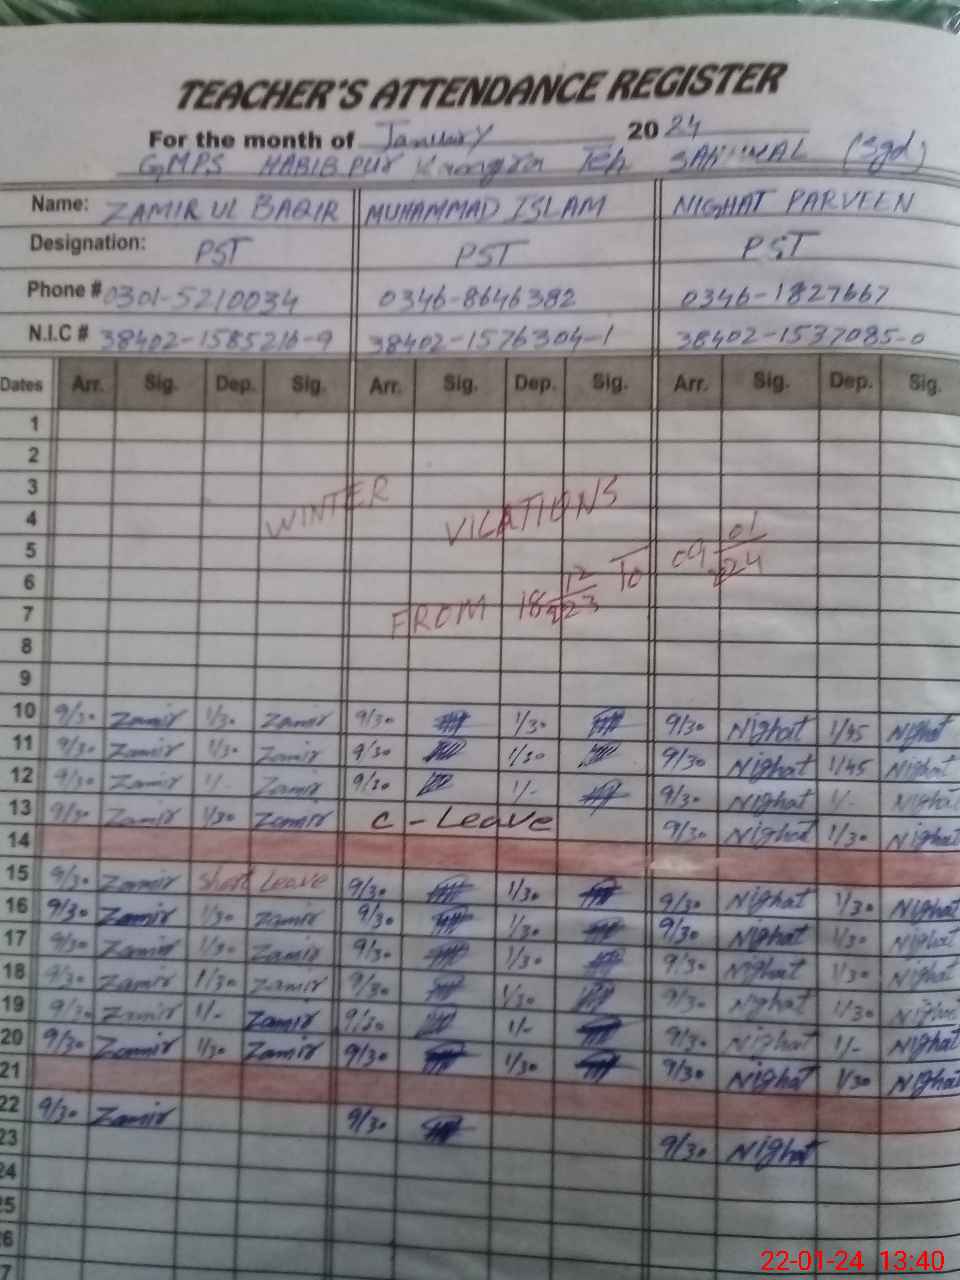 TEACHER'S ATTENDANCE REGISTER
For the month of January 2024
GMPS HABIB PUR Teh SAHIWAL (Sgd)
Name: ZAMIR UL BAQIR MUHAMMAD ISLAM NIGHAT PARVEEN
Designation: PST PST PST
Phone # 0301-5210034 0346-8646382 0346-1827667
N.I.C # 38402-1585216-9 38402-1576304-1 38402-1537085-0
Dates Arr. Sig. Dep. Sig. Arr. Sig. Dep. Sig. Arr. Sig. Dep. Sig.
1
2
3
WINTER VICATIONS
4
5
FROM 18 12/223 To 09 01/224
6
7
8
9
10 9/30 Zamir 1/30 Zamir 9/30 1/30 9/30 Nighat 1/45 Nighat
11 9/30 Zamir 1/30 Zamir 9/30 1/30 9/30 Nighat 1/45 Nighat
12 9/30 Zamir 1/- Zamir 9/30 1/- 9/30 Nighat 1/- Nighat
13 9/30 Zamir 1/30 Zamir C - Leave 9/30 Nighat 1/30 Nighat
14
15 9/30 Zamir Short Leave 9/30 1/30 9/30 Nighat 1/30 Nighat
16 9/30 Zamir 1/30 Zamir 9/30 1/30 9/30 Nighat 1/30 Nighat
17 9/30 Zamir 1/30 Zamir 9/30 1/30 9/30 Nighat 1/30 Nighat
18 9/30 Zamir 1/30 Zamir 9/30 1/30 9/30 Nighat 1/30 Nighat
19 9/30 Zamir 1/- Zamir 9/30 1/- 9/30 Nighat 1/- Nighat
20 9/30 Zamir 1/30 Zamir 9/30 1/30 9/30 Nighat 1/30 Nighat
21
22 9/30 Zamir 9/30 9/30 Nighat
23
24
25
26
22-01-24 13:40